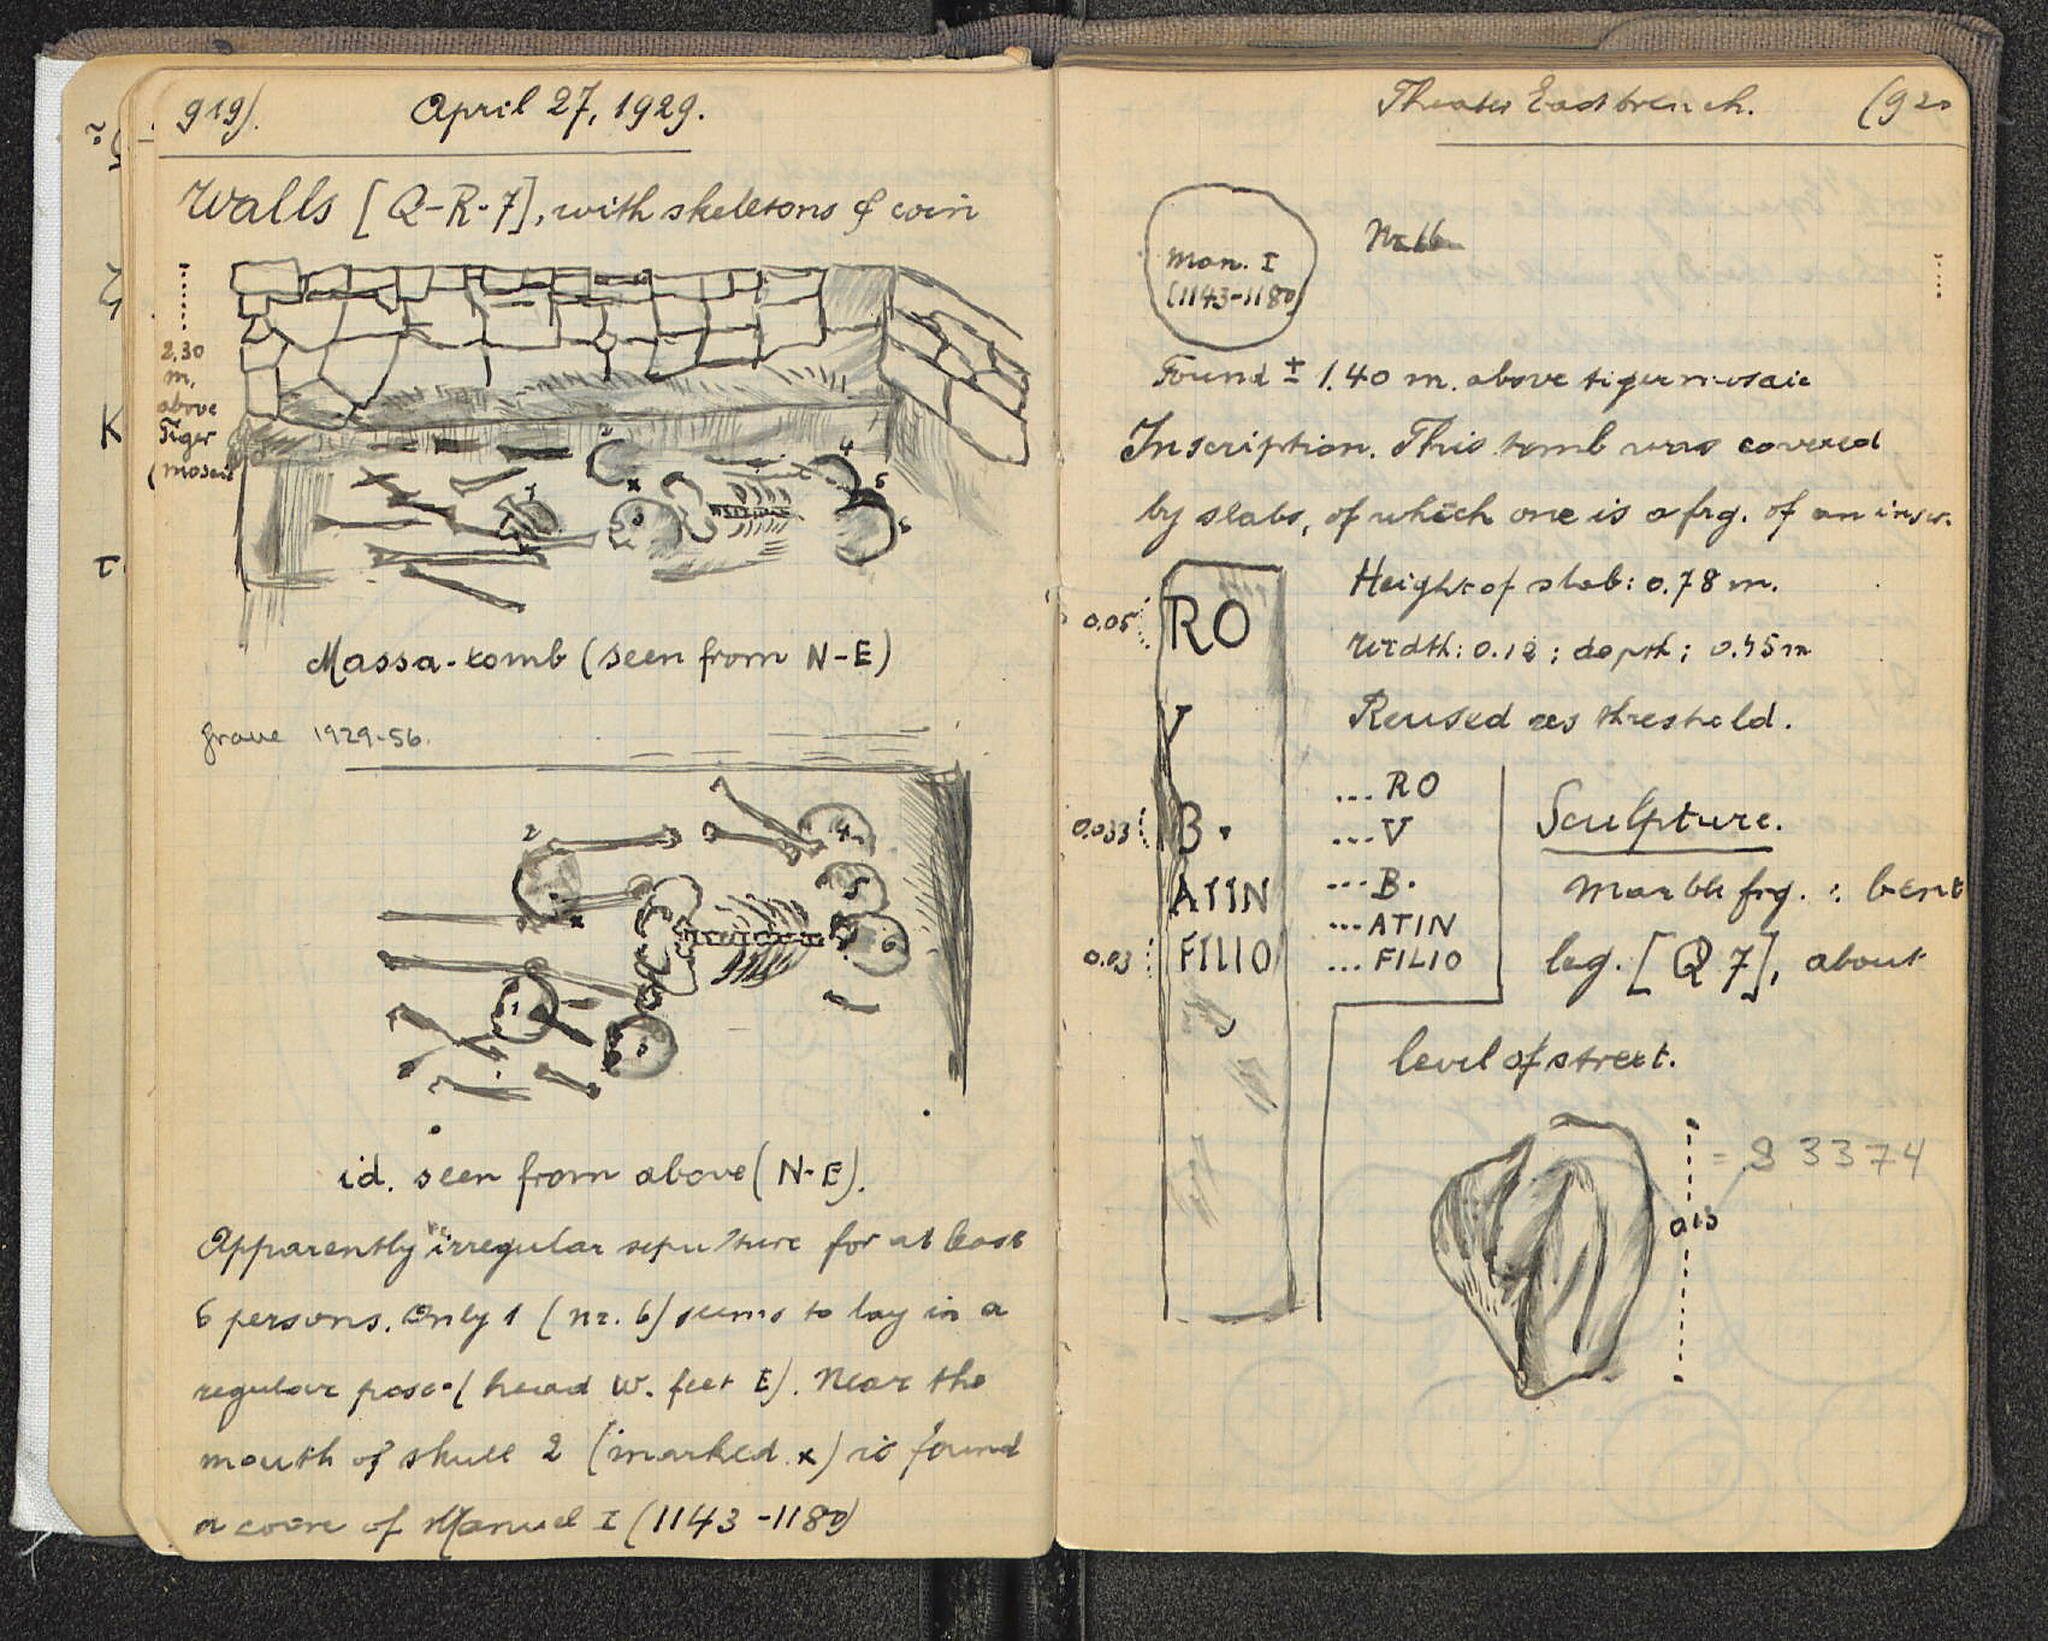 919). April 27, 1929.
Walls [Q-R-7], with skeletons & coin
2.30
m.
above
Tiger
(mosaic
2
4
5
1
3
6
x
Massa-tomb (seen from N-E)
grave 1929-56.
2
4
5
6
1
3
x
id. seen from above (N-E).
Apparently irregular sepulture for at least
6 persons. Only 1 (nr. 6) seems to lay in a
regular pose (head W. feet E). Near the
mouth of skull 2 (marked x) is found
a coin of Manuel I (1143-1180)
K
τ
Theater East trench. (920
Man. I
(1143-1180)
Found ± 1.40 m. above tiger mosaic
Inscription. This tomb was covered
by slabs, of which one is a frg. of an inscr.
0.05 RO
V
0.033 B.
ATIN
0.03 FILIO
Height of slab: 0.78 m.
Width: 0.12; depth; 0.45 m
Reused as threshold.
...RO
...V
...B.
...ATIN
...FILIO
Sculpture.
Marble frg.: bent
leg. [Q 7], about
level of street.
= S 3374